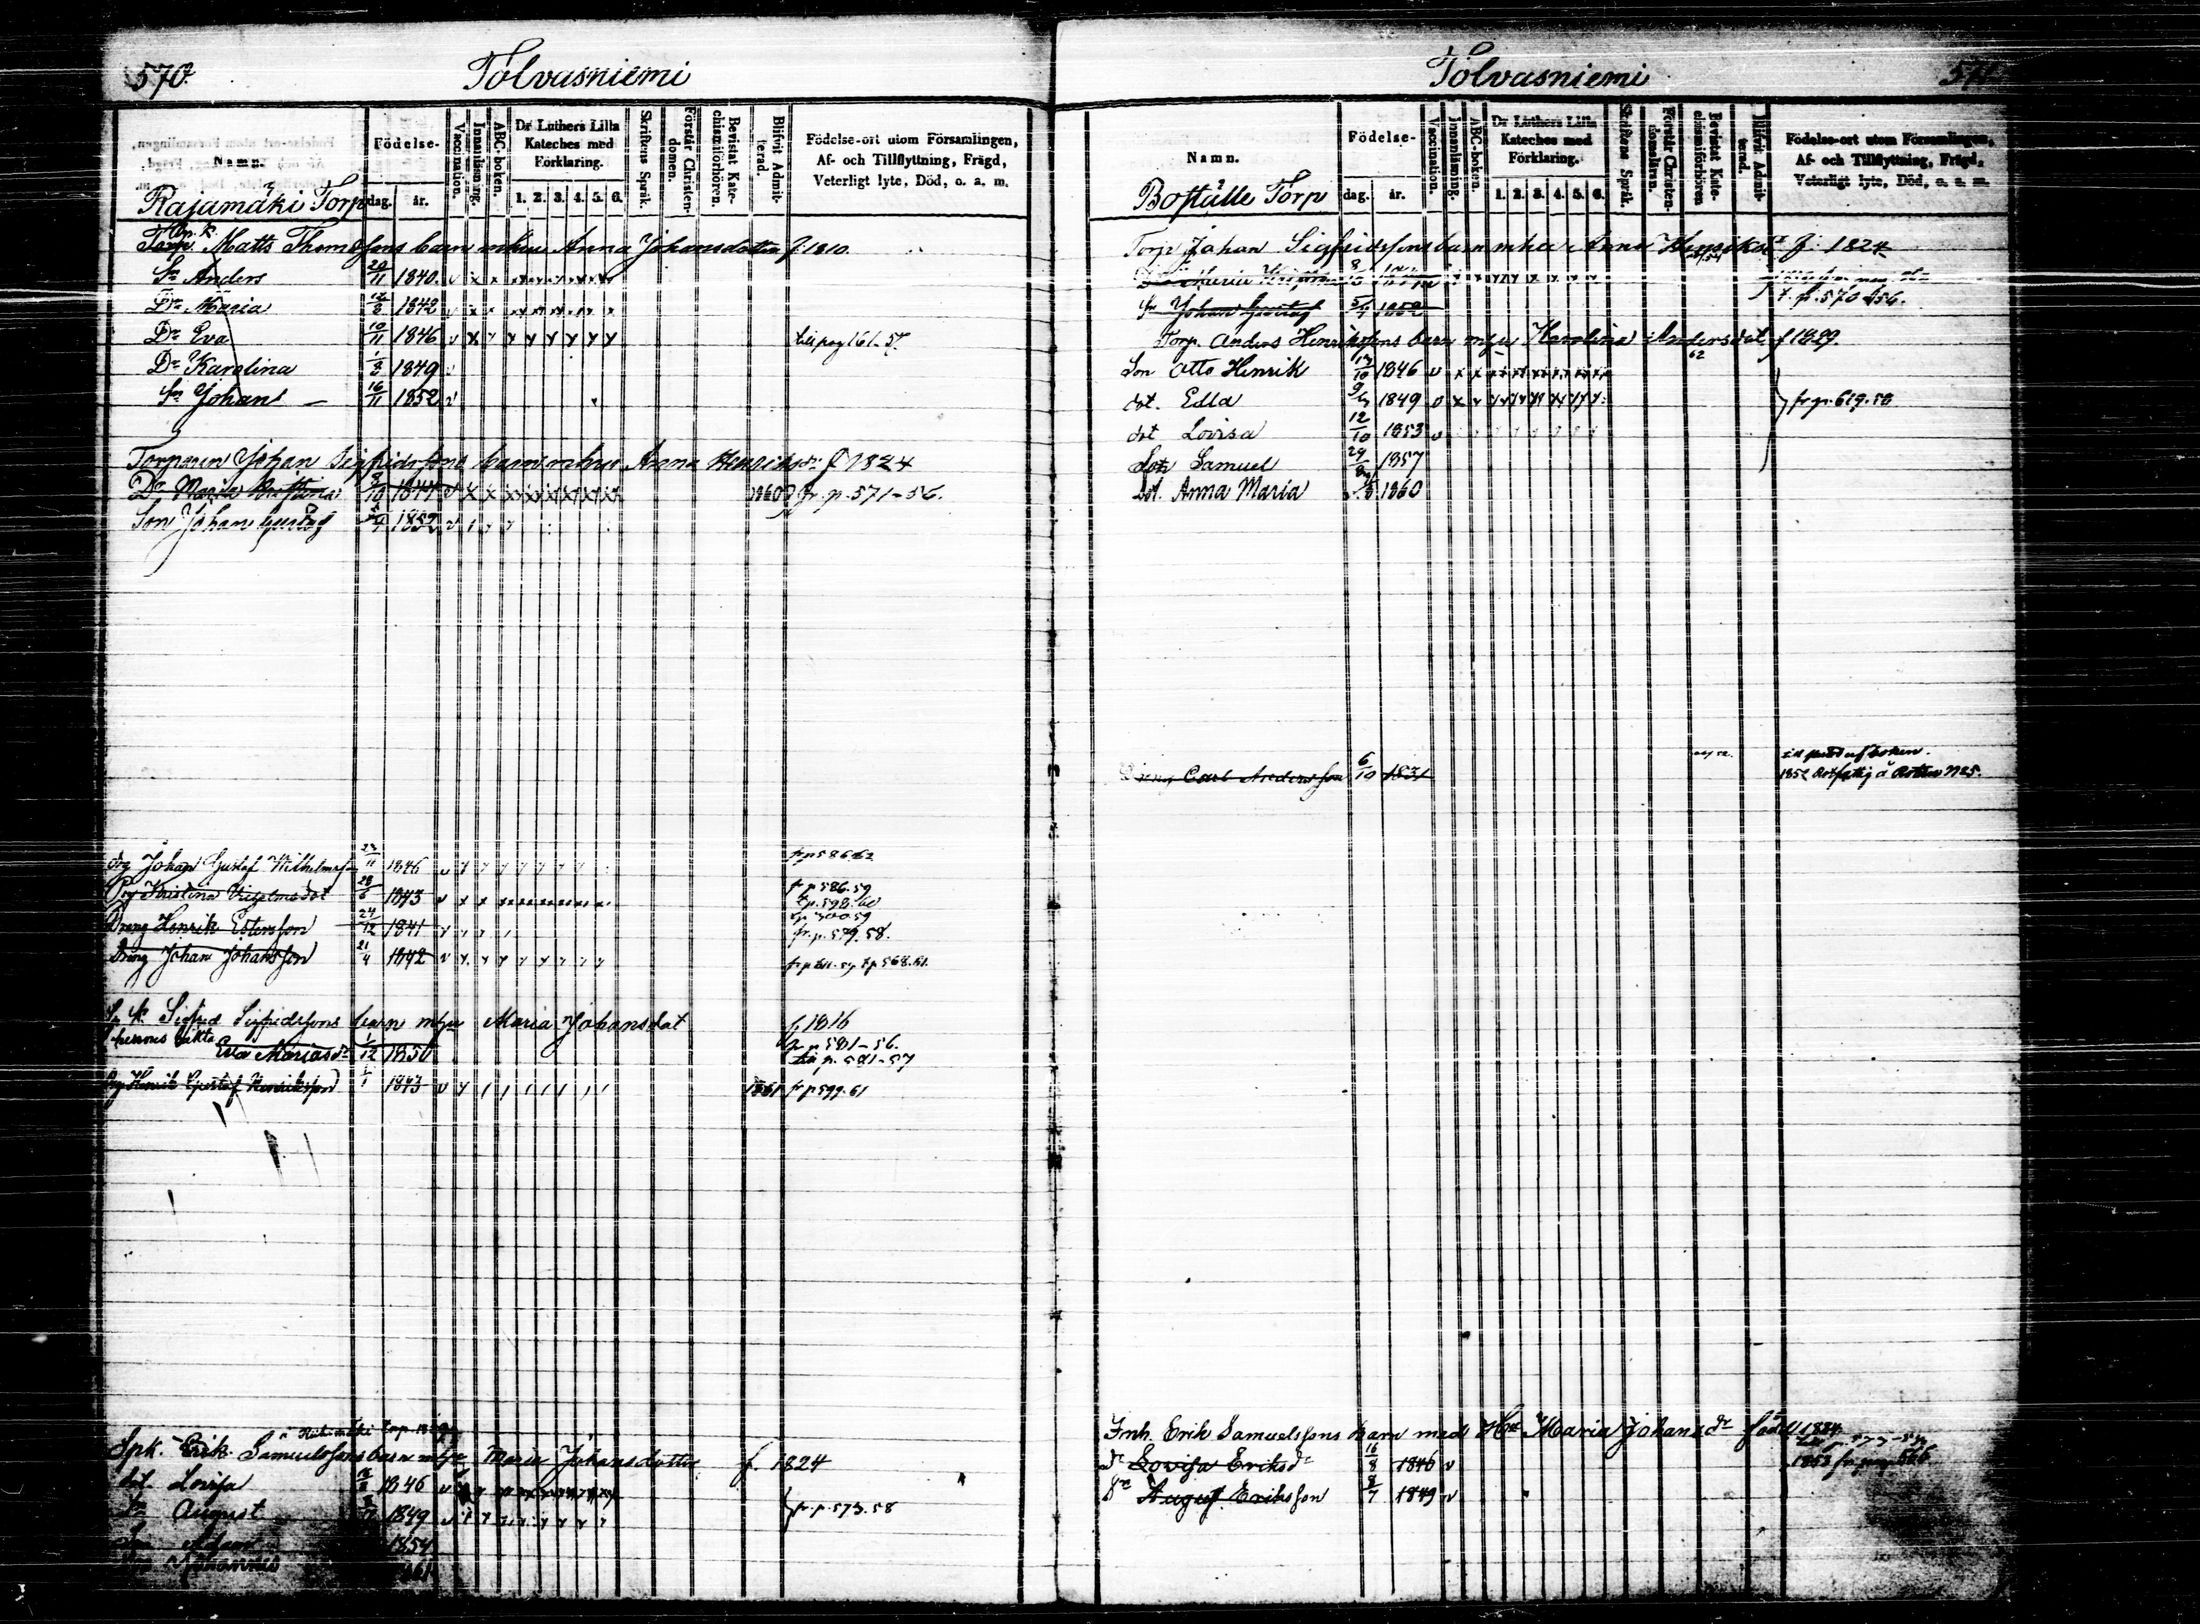 570.
Tolvasniemi
Namn.
Födelse-
dag.
år.
Vaccination.
Innanläsning.
ABC-boken.
Dr Luthers Lilla Kateches med Förklaring.
1. 2. 3. 4. 5. 6.
Skriftens Språk.
Förstår Christendomen.
Bevistat Katechismiförhören.
Blifvit Admitterad.
Födelse-ort utom Församlingen,
Af- och Tillflyttning, Frägd,
Veterligt lyte, Död, o. a. m.
Rajamäki Torp
Torp. Matts Thomassons barn mhu Anna Johansdotter f. 1810.
Sn Anders 20/11 1840.
Dr Maria 12/8 1842
Dr Eva 10/11 1846 till pag 161-57
Dr Karolina 1/2 1849
Sn Johan 16/11 1852
Torparen Johan Sigfridssons barn mhu Anna Henriksdr f 1824
Dr Maria 1844 1860 fr. p. 571-56.
Son Johan Gustaf 5/4 1852
drg Johan Gustaf Wilhelmss 23/11 1846 fr p 586 62
Kristina 28/6 1843 fr p 586.59
t p. 598.60
Dreng Henrik 24/12 1841 fr. p. 579. 58.
Dreng Johan Johansson 21/4 1842 t p 568.61.
Sigfrid Sigfridssons barn mhu Maria Johansdot f 1816
Eva Mariasdr 1/12 1850 fr p 581-56.
till p. 581-57
Drg Henrik Gustaf Henriksson 1/1 1843 1861 fr p 599.61
Spk. Erik Samuelssons barn mhu Maria Johansdotter f. 1824
dot. Lovisa 16/8 1846
Sn August 8/7 1849 fr. p. 573.58
Adam 1854
Johannes
Tolvasniemi
571
Namn.
Födelse-
dag.
år.
Vaccination.
Innanläsning.
ABC-boken.
Dr Luthers Lilla Kateches med Förklaring.
1. 2. 3. 4. 5. 6.
Skriftens Språk.
Förstår Christendomsläran.
Bevistat Katechismiförhören
Blifvit Admitterad.
Födelse-ort utom Församlingen,
Af- och Tillflyttning, Frägd,
Veterligt lyte, Död, o. a. m.
Boställe Torp
Torp Johan Sigfridssons barn mhu Anna Henriksdr f. 1824
Maria 8/10
Sn Johan Gustaf 5/4 1852 t. p. 570 56.
Torp. Anders Henrikssons barn mhu Karolina Andersdot f 1829.
Son Otto Henrik 13/10 1846
dot. Edla 9/4 1849 fr. p. 619.58
dot Lovisa 12/10 1853
Son Samuel 29/8 1857
Dot. Anna Maria 1860
Dreng Carl Andersson 6/10 1831
Inh. Erik Samuelssons barn med Hu Maria Johansdr född 1824
dr Lovisa Eriksdr 16/8 1846
Sn August Eriksson 8/7 1849